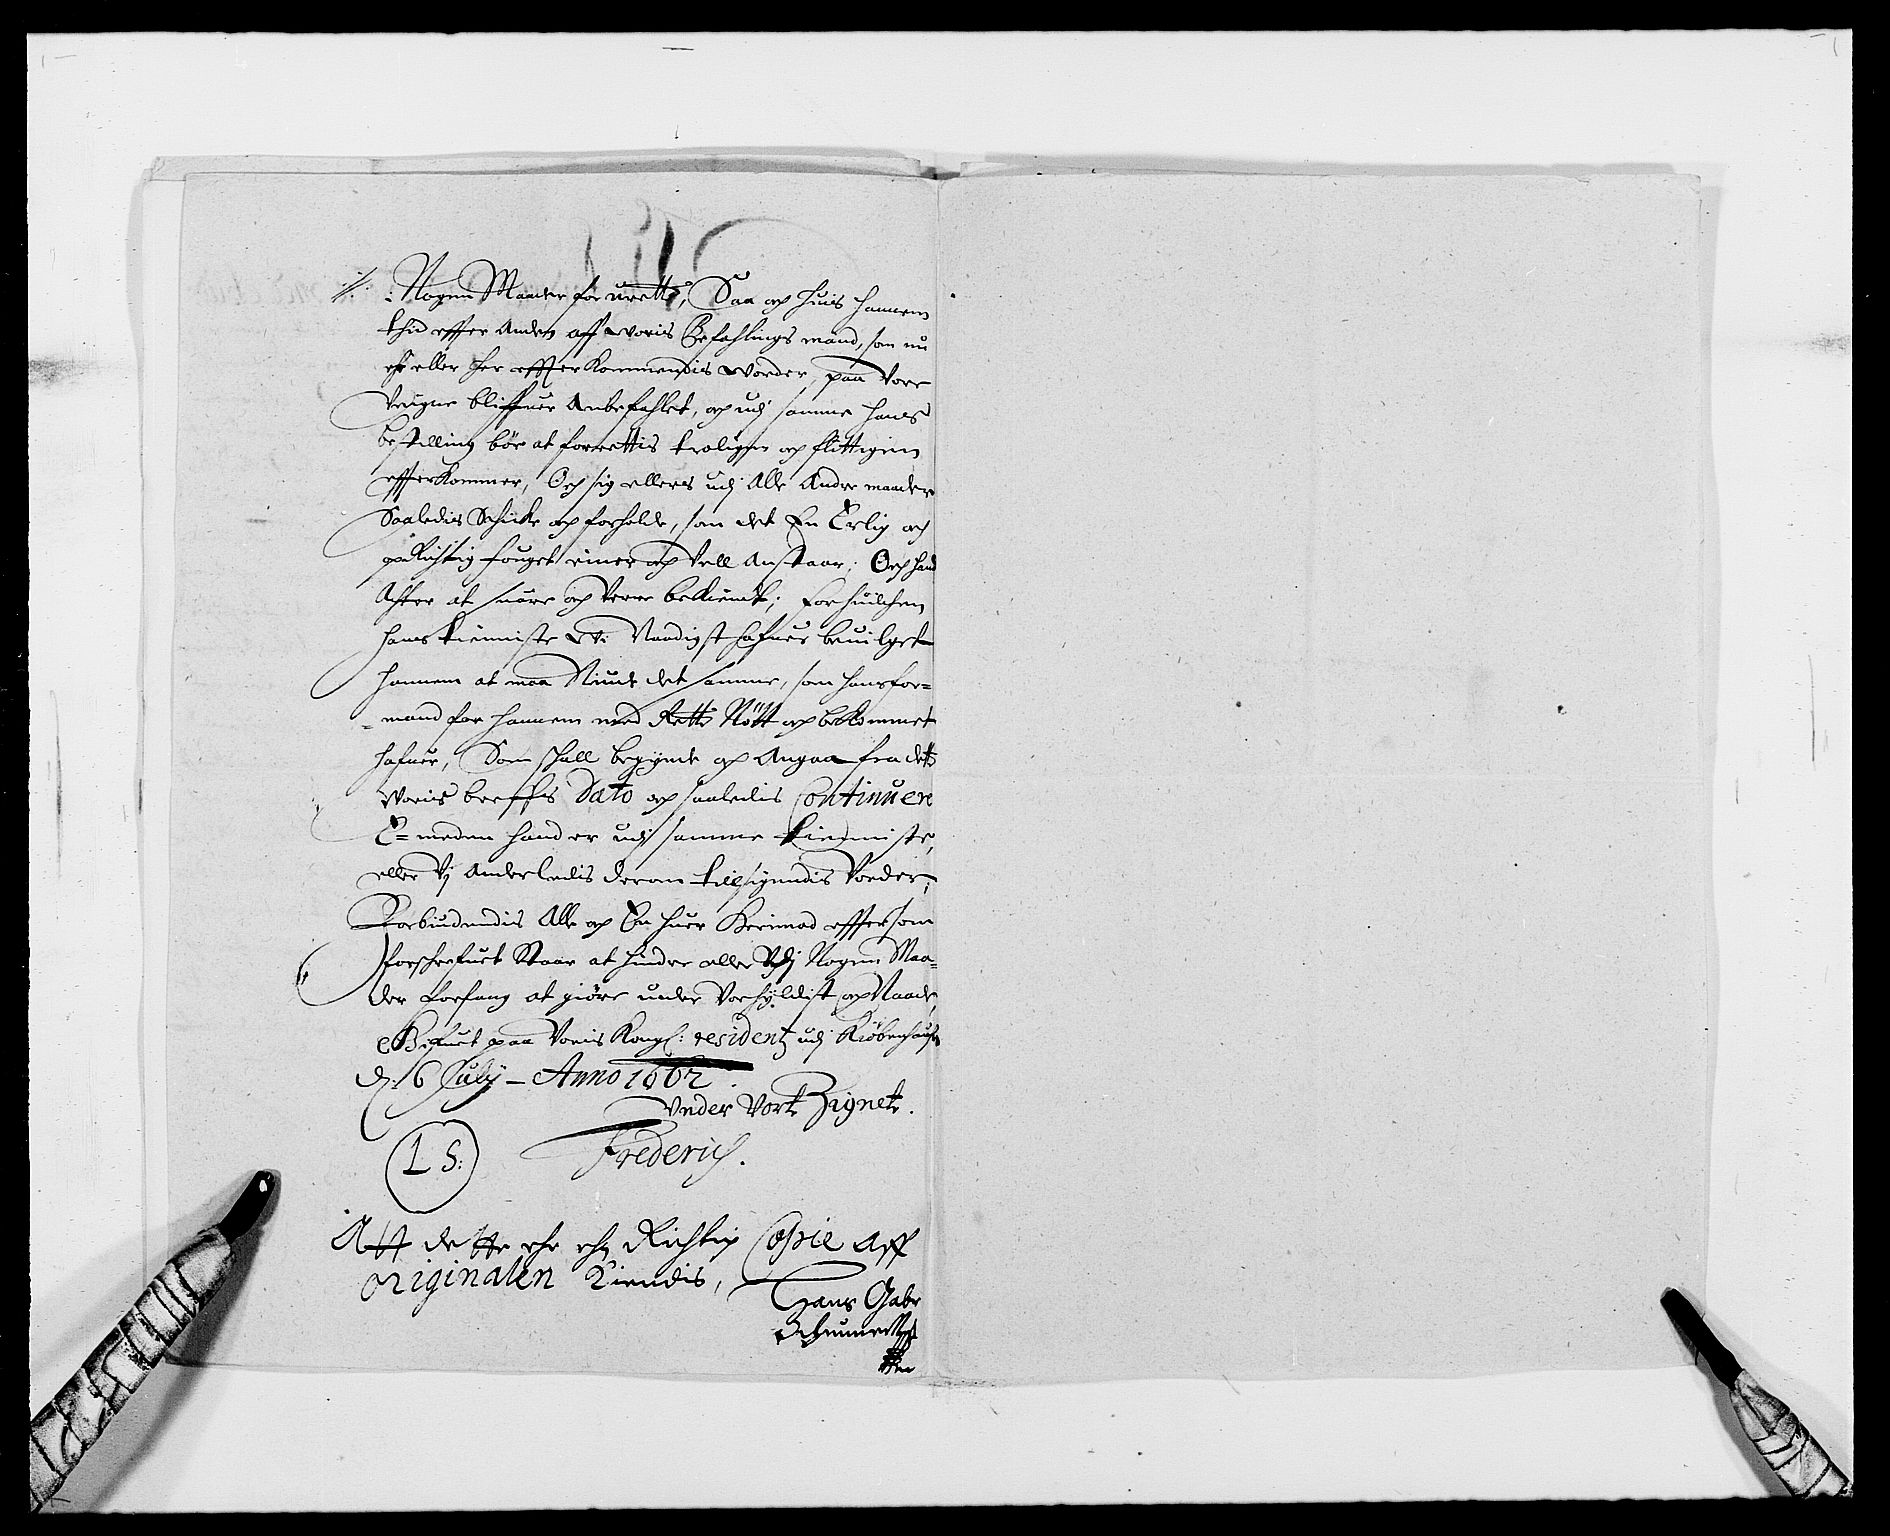 Nogen Maader for urette, Saa og huis hannem
thid effter Anden aff woris Befahlings mand, som nu
ehr eller her effter Kommendis worder, paa Vore
Veigne bliffuer Anbefahlet, og udj samme hans
bestilling bör at forrettis troligen og flittigen
effterkommer, Och sig ellers udj Alle Andre maader
Saaledis Schicke og forholde, som det En Ærlig och
opRichtig fouget eigner og Vell Anstaar; Och hand
Achter at suare og Være bekiendt; for huilchen
hans tienniste Wi Naadigst hafuer beuilget
hannem at maa Niude det samme, som hans for=
=mand for hannem med Rette Nött og bekommet
hafuer, Som schall begynde og Angaa fra dette
Woris breffs Dato og saaledis Continuere
E= medens hand er udj samme tienniste,
eller Vj Anderledis derom tilsigendis Vorder,
Forbiudendis Alle og En huer herimod effter som
forschrefuet Staar at hindre eller Udj Nogen Maa=
der forfang at giöre under Vor hyldist og Naade,
Schrefuet paa Voris Kongl: residentz udj Kiöbenhaufn
d: 6 July - Anno 1662.
Under Vort Zignete.
L S: Frederich.
Att dette ehr ehn Richtig Copie Aff
originalen Kiendis,
Hans Gabr